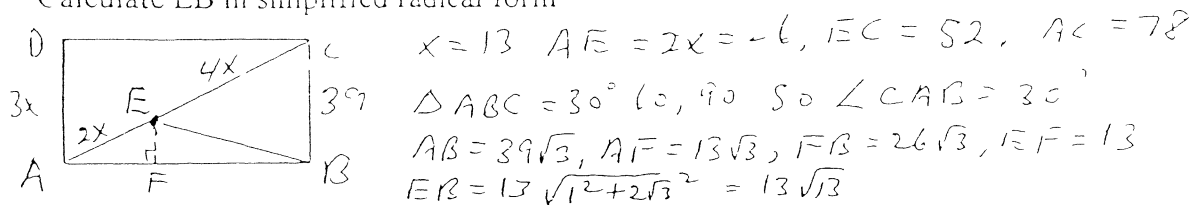 Calculate EB in simplified radical form
D C 4x 3x E 39 2x A F B
x = 13 AE = 2x = -6, EC = 52, AC = 78
△ABC = 30° 60, 90 So ∠CAB = 30°
AB = 39√3, AF = 13√3, FB = 26√3, EF = 13
EB = 13 √1² + 2√3² = 13√13